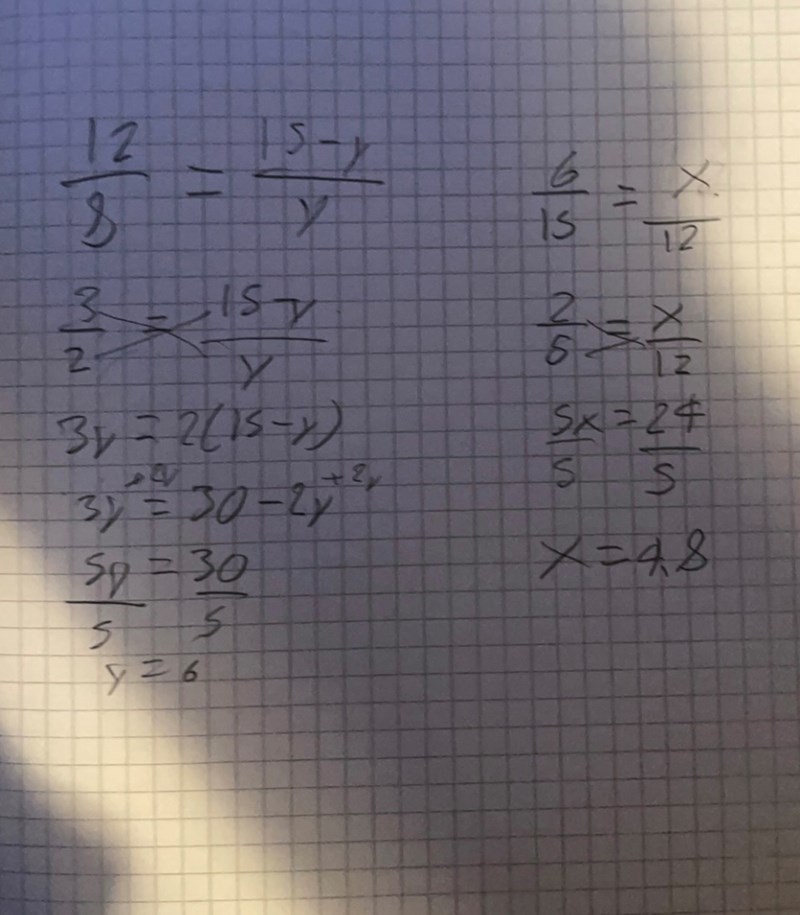 12/8 = 15-y/y
3/2 = 15-y/y
3y = 2(15-y)
3y+2y = 30-2y+2y
5y/5 = 30/5
y = 6
6/15 = x/12
2/5 = x/12
5x/5 = 24/5
x = 4.8